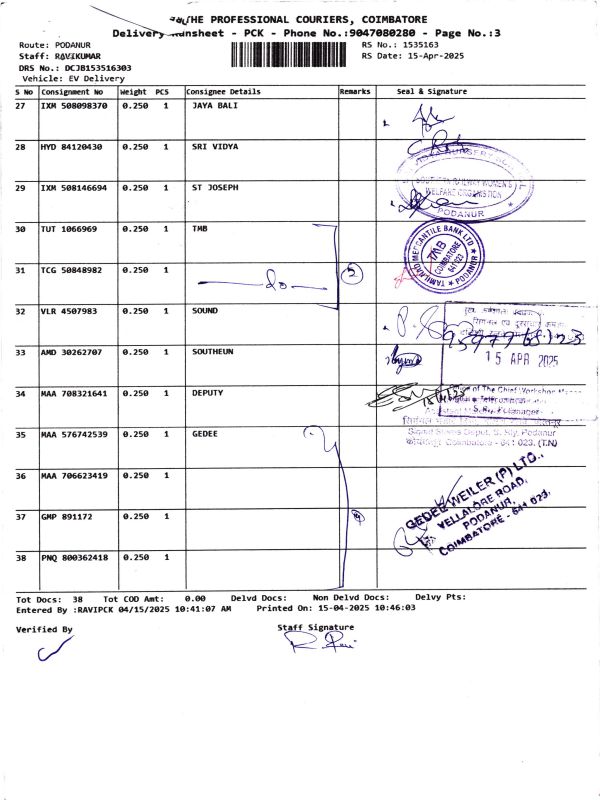 THE PROFESSIONAL COURIERS, COIMBATORE
Delivery Runsheet - PCK - Phone No.:9047080280 - Page No.:3
Route: PODANUR
RS No.: 1535163
Staff: RAVIKUMAR
RS Date: 15-Apr-2025
DRS No.: DCJB153516303
Vehicle: EV Delivery
S No Consignment No Weight PCS Consignee Details Remarks Seal & Signature
27 IXM 508098370 0.250 1 JAYA BALI
28 HYD 84120430 0.250 1 SRI VIDYA
29 IXM 508146694 0.250 1 ST JOSEPH
SOUTHERN RAILWAY WOMEN'S
WELFARE ORGANISATION
PODANUR
30 TUT 1066969 0.250 1 TMB
TAMILNAD MERCANTILE BANK LTD
TMB
COIMBATORE
641 023
PODANUR
31 TCG 50848982 0.250 1 do 2
32 VLR 4507983 0.250 1 SOUND
33 AMD 30262707 0.250 1 SOUTHEUN
15 APR 2025
34 MAA 708321641 0.250 1 DEPUTY
of The Chief Workshop
S. Rly, Podanur
35 MAA 576742539 0.250 1 GEDEE
Signal Stores Depot, S. Rly, Podanur
Coimbatore - 641 023. (T.N)
36 MAA 706623419 0.250 1
GEDEE WEILER (P) LTD.,
VELLALORE ROAD,
PODANUR,
COIMBATORE - 641 023.
37 GMP 891172 0.250 1 4
38 PNQ 800362418 0.250 1
Tot Docs: 38 Tot COD Amt: 0.00 Delvd Docs: Non Delvd Docs: Delvy Pts:
Entered By :RAVIPCK 04/15/2025 10:41:07 AM Printed On: 15-04-2025 10:46:03
Verified By
Staff Signature